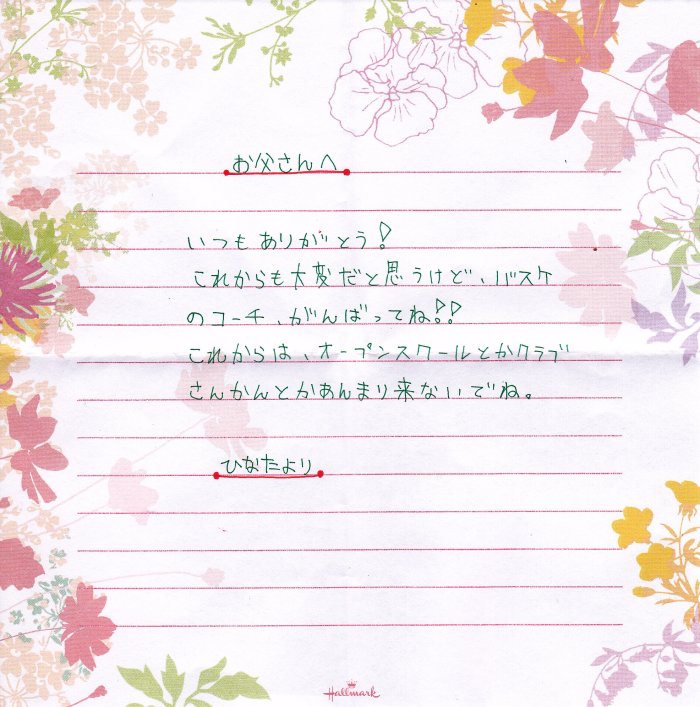 お父さんへ
いつもありがとう!
これからも大変だと思うけど、バスケ
のコーチ、がんばってね!!
これからは、オープンスクールとかクラブ
さんかんとかあんまり来ないでね。
ひなたより
Hallmark